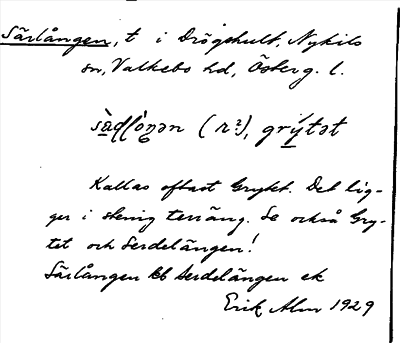 Särlången, t i Drögshult, Nykils
sn, Valkebo hd, Österg. l.
sàḍḷòŋən (r?), grýtət
Kallas oftast Grytet. Det lig-
ger i stenig terräng. Se också Gry-
tet och Serdelängen!
Särlången kb Serdelängen ek
Erik Alm 1929